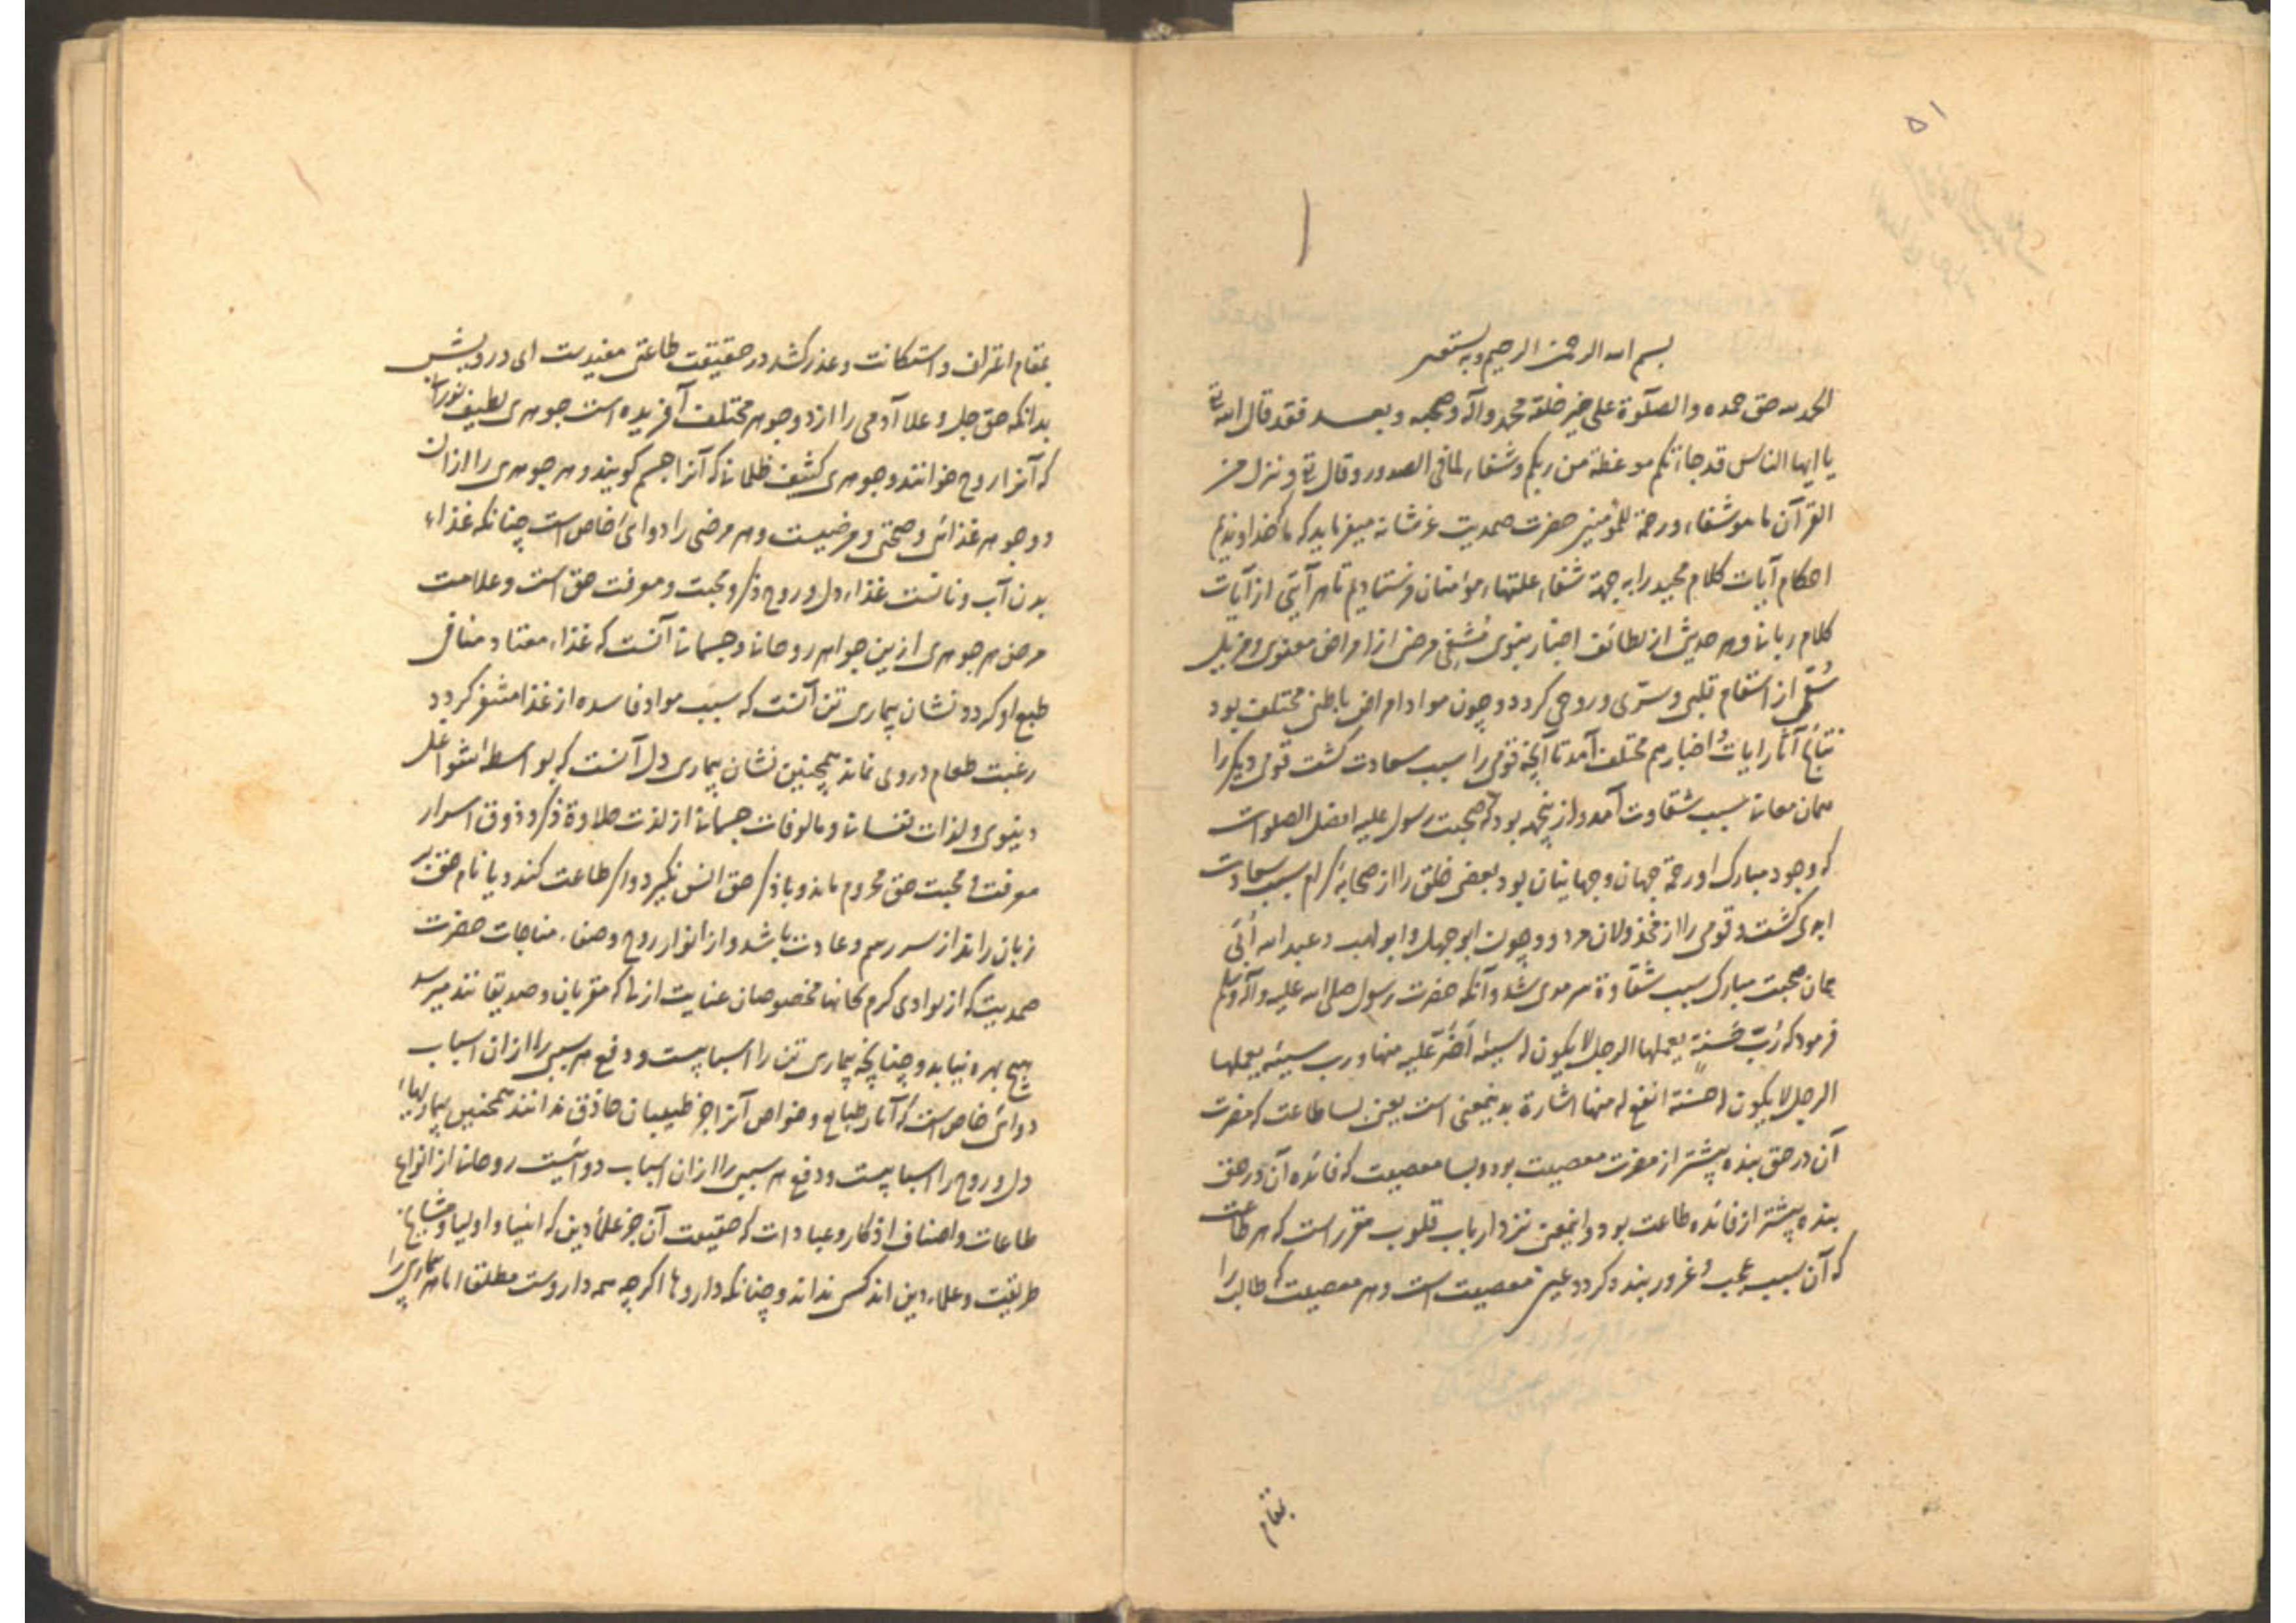 ۵۱
بسم الله الرحمن الرحیم وبه نستعین
الحمد لله حق حمده والصلوة علی خیر خلقه محمد وآله وصحبه وبعد فقد قال الله تع
یا ایها الناس قد جاءتکم موعظة من ربکم وشفاء لما فی الصدور وقال تع و ننزل من
القرآن ما هو شفاء ورحمة للمؤمنین حضرت صمدیت عز شانه میفرماید که ما که خداوندیم
احکام آیات کلام مجید را به جهة شفاء علتهاء مؤمنان فرستادیم تا هر آیتی از آیات
کلام ربانی و هر حدیثی از لطائف اخبار نبوی مُشفی مرضی از امراض معنوی و مزیل
سُقمی از اسقام قلبی و سرّی و روحی گردد و چون مواد امراض باطنی مختلف بود
نتایج آثار ایات و اخبار هم مختلف آمد تا آنچه قومی را سبب سعادت گشت قومی دیگر را
همان معانی سبب شقاوت آمد و ازینجهة بود که صحبت رسول علیه افضل الصلوات
که وجود مبارک او رحمة جهان و جهانیان بود بعضی خلق را از صحابهٔ کرام سبب سعادت
ابدی گشت و قومی را از مخذولان مردود چون ابوجهل و ابو لهب و عبد الله اُبَیّ
همان صحبت مبارک سبب شقاوة سرمدی شد و آنکه حضرت رسول صلی الله علیه وآله وسلم
فرمود که رُبّ حَسَنةٍ یعملها الرجل لا یکون له سیئة اَضَرّ علیه منها ورب سیئة یعملها
الرجل لا یکون له حسنة انفع له منها اشارة بدینمعنی است یعنی بسا طاعت که مضرت
آن در حق بنده بیشتر از مضرت معصیت بود و بسا معصیت که فائده آن در حق
بنده بیشتر از فائده طاعت بود و اینمعنی نزد ارباب قلوب مقرر است که هر طاعت
که آن سبب عجب و غرور بنده گردد عین معصیت است و هر معصیت که طالب را
بمقام
بمقام اعتراف و استکانت و عذر کشد در حقیقت طاعتی مفیدست ای درویش
بدانکه حق جل و علا آدمی را از دو جوهر مختلف آفریده است جوهری لطیف نورانی
که آنرا روح خوانند و جوهری کثیف ظلمانی که آنرا جسم گویند و هر جوهری را ازان
دو جوهر غذائی و صحتی و مرضیست و هر مرضی را دوائی خاص است چنانکه غذاء
بدن آب و نانست غذاء دل و روح ذکر و محبت و معرفت حق است و علامت
مرض هر جوهری ازین جواهر روحانی و جسمانی آنست که غذاء معتاد منافی
طبع او گردد نشان بیماری تن آنست که سبب مواد فاسده از غذا متنفر گردد
رغبت طعام در وی نماند همچنین نشان بیماری دل آنست که بواسطهٔ شواغل
دنیوی و لذات نفسانی و مالوفات جسمانی از لذت حلاوة ذکر و ذوق اسرار
معرفت و محبت حق محروم ماند و با ذکر حق انس نگیرد و اگر طاعت کند و یا نام حق بر
زبان راند از سر رسم و عادت باشد و از انوار روح و صفاء مناجات حضرت
صمدیت که از بوادی کرم بجانها مخصوصان عنایت ازلی که مقربان و صدیقانند میرسد
هیچ بهره نیابد و چنانچه بیماری تن را اسبابیست و دفع هر سببی را ازان اسباب
دوائی خاص است که آثار طبایع و خواص آنرا جز طبیبان حاذق ندانند همچنین بیماریهاء
دل و روح را اسبابیست و دفع هر سببی را ازان اسباب دوائیست روحانی از انواع
طاعات و اصناف اذکار و عبادات که حقیقت آن جز علماء دین که انبیا و اولیا و مشایخ
طریقت و علماء دین اند کس نداند و چنانکه داروها اگرچه همه داروست مطلق اما هر بیماری را